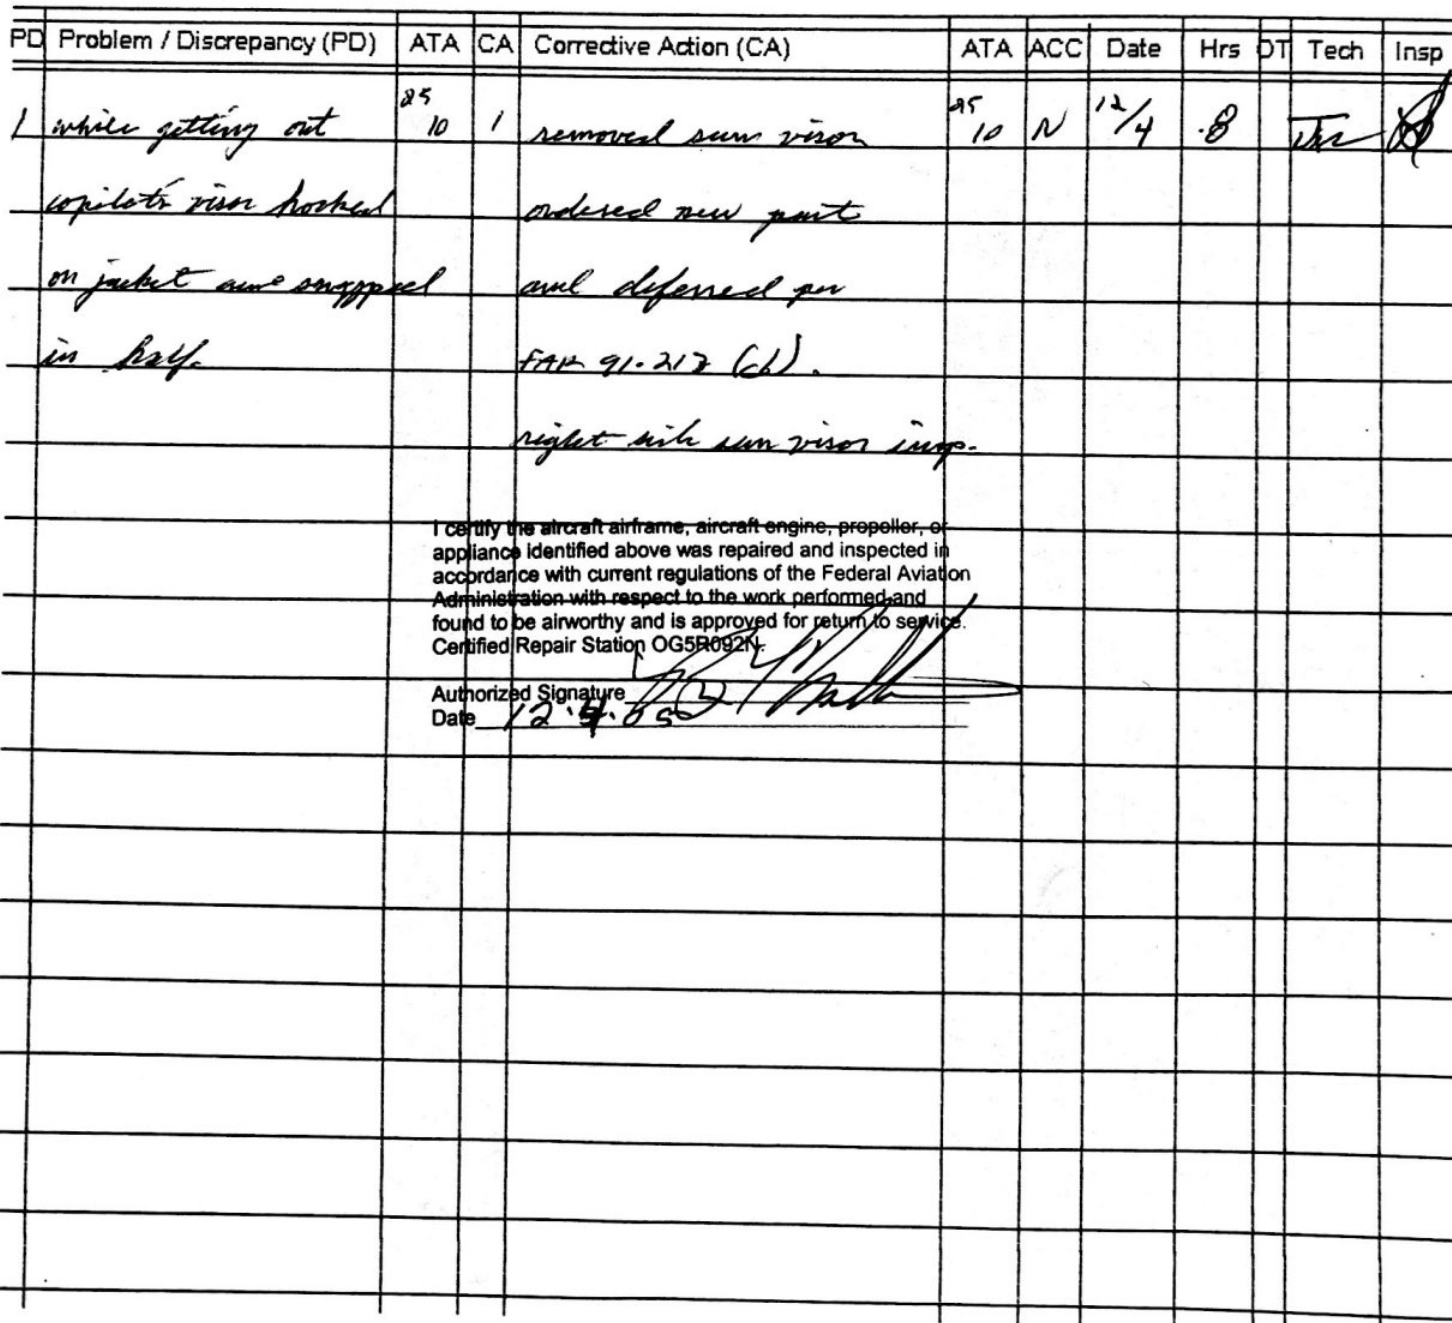 PD Problem / Discrepancy (PD) ATA CA Corrective Action (CA) ATA ACC Date Hrs DT Tech Insp
1 while getting out 25 10 1 removed sun visor 25 10 N 12/4 .8
copilot's visor hooked ordered new part
on jacket and snapped and deferred per
in half. FAR 91.213 (d).
right side sun visor inop.
I certify the aircraft airframe, aircraft engine, propeller, or
appliance identified above was repaired and inspected in
accordance with current regulations of the Federal Aviation
Administration with respect to the work performed and
found to be airworthy and is approved for return to service.
Certified Repair Station OG5R092N.
Authorized Signature
Date 12.4.05